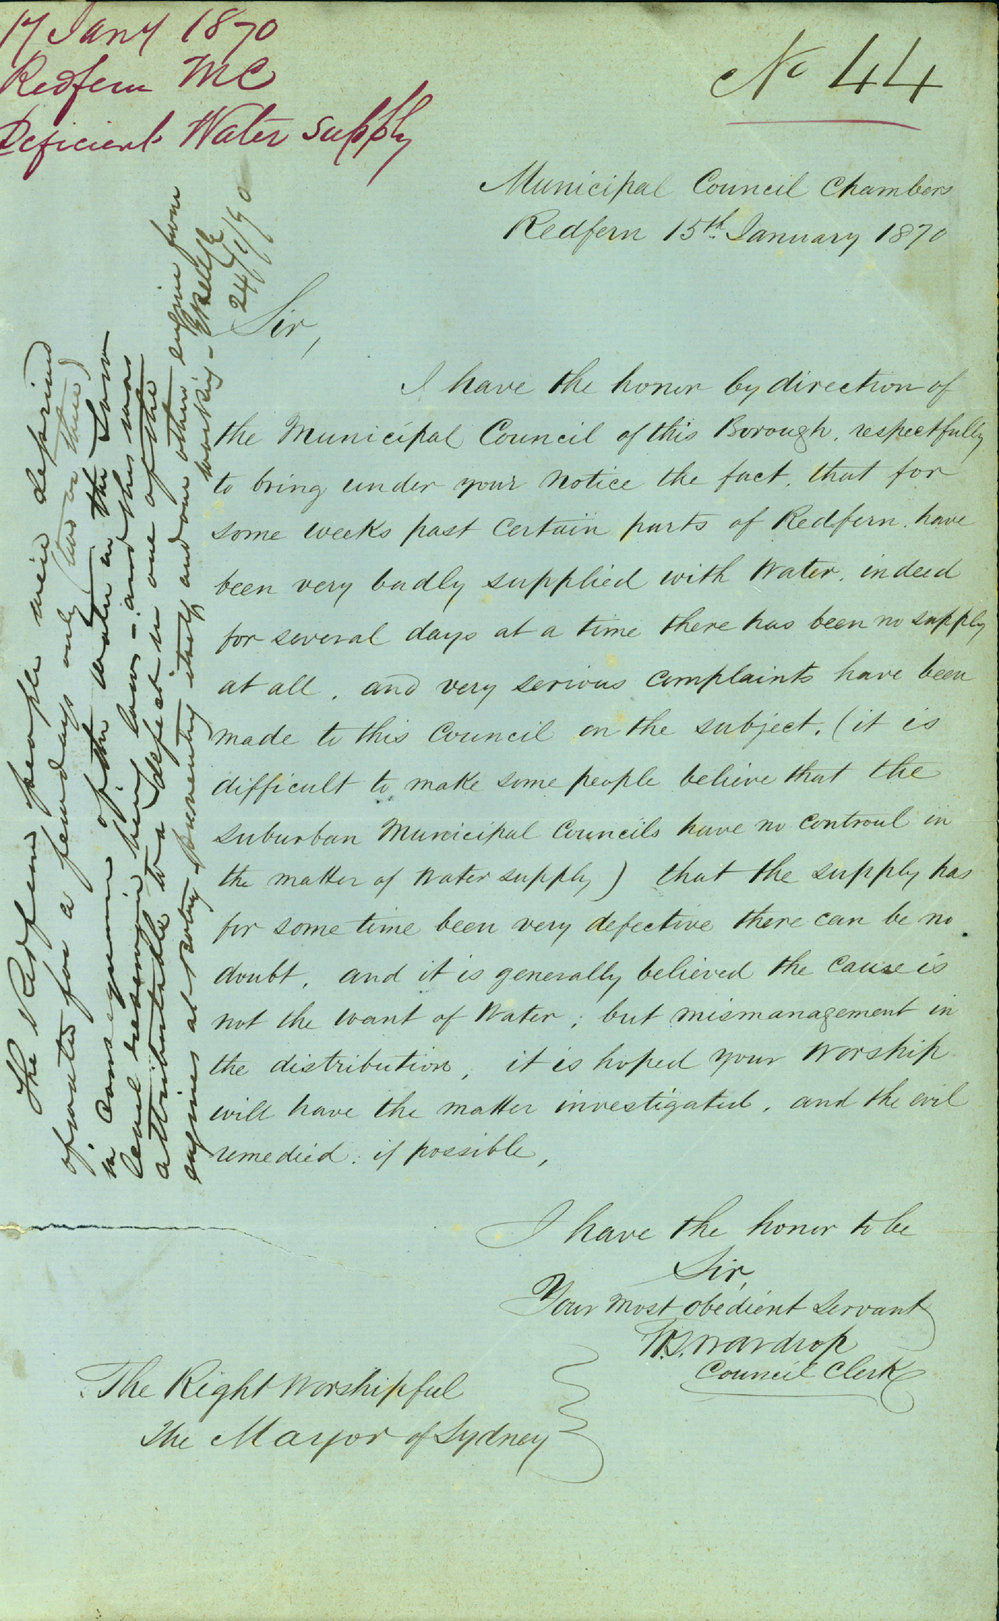 17 Jany 1870
Redfern MC
Deficient Water Supply
No 44
Municipal Council Chambers
Redfern 15th January 1870
Sir,
I have the honor by direction of
the Municipal Council of this Borough, respectfully
to bring under your notice the fact, that for
some weeks past certain parts of Redfern have
been very badly supplied with Water, indeed
for several days at a time there has been no supply
at all, and very serious complaints have been
made to this Council on the subject, (it is
difficult to make some people believe that the
suburban Municipal Councils have no controul in
the matter of Water supply) that the supply has
for some time been very defective there can be no
doubt, and it is generally believed the cause is
not the want of Water; but mismanagement in
the distribution, it is hoped your Worship
will have the matter investigated, and the evil
remedied: if possible,
I have the honor to be
Sir,
Your most obedient servant
Wardrop
Council Clerk
The Right Worshipful
The Mayor of Sydney
The Redfern people were deprived
of water for a few days only (two or three)
in consequence of the water in the Low
level reservoir being low - and this was
attributable to a defect in one of the
engines at Botany preventing itself and one other engine from
working -
24/1/70